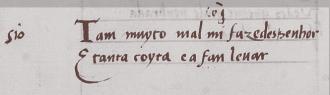 Tam muyto mal mi fazedes senhor
E tanta coyta e afan levar